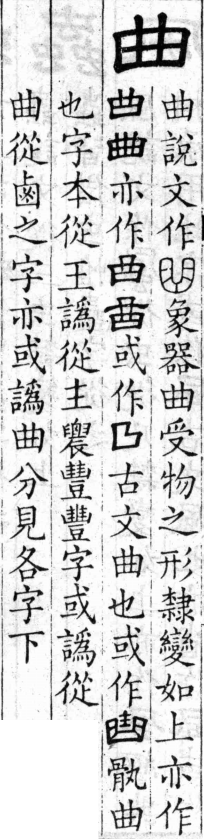 曲
曲說文作象器曲受物之形隸變如上亦作
曲亦作或作古文曲也或作骩曲
也字本從王譌從主農豐豐字或譌從
曲從鹵之字亦或譌曲分見各字下